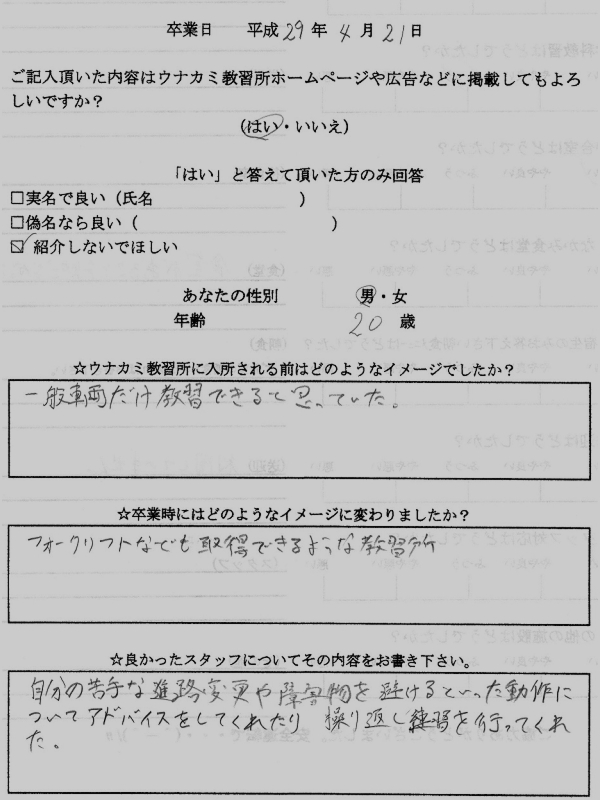 卒業日 平成29年4月21日
ご記入頂いた内容はウナカミ教習所ホームページや広告などに掲載してもよろ
しいですか？
（はい・いいえ）
「はい」と答えて頂いた方のみ回答
□実名で良い（氏名 ）
□偽名なら良い（ ）
☑紹介しないでほしい
あなたの性別 男・女
年齢 20 歳
☆ウナカミ教習所に入所される前はどのようなイメージでしたか？
一般車両だけ教習できると思っていた。
☆卒業時にはどのようなイメージに変わりましたか？
フォークリフトなども取得できるような教習所
☆良かったスタッフについてその内容をお書き下さい。
自分の苦手な進路変更や障害物を避けるといった動作に
ついてアドバイスをしてくれたり、操り返し練習を行ってくれ
た。